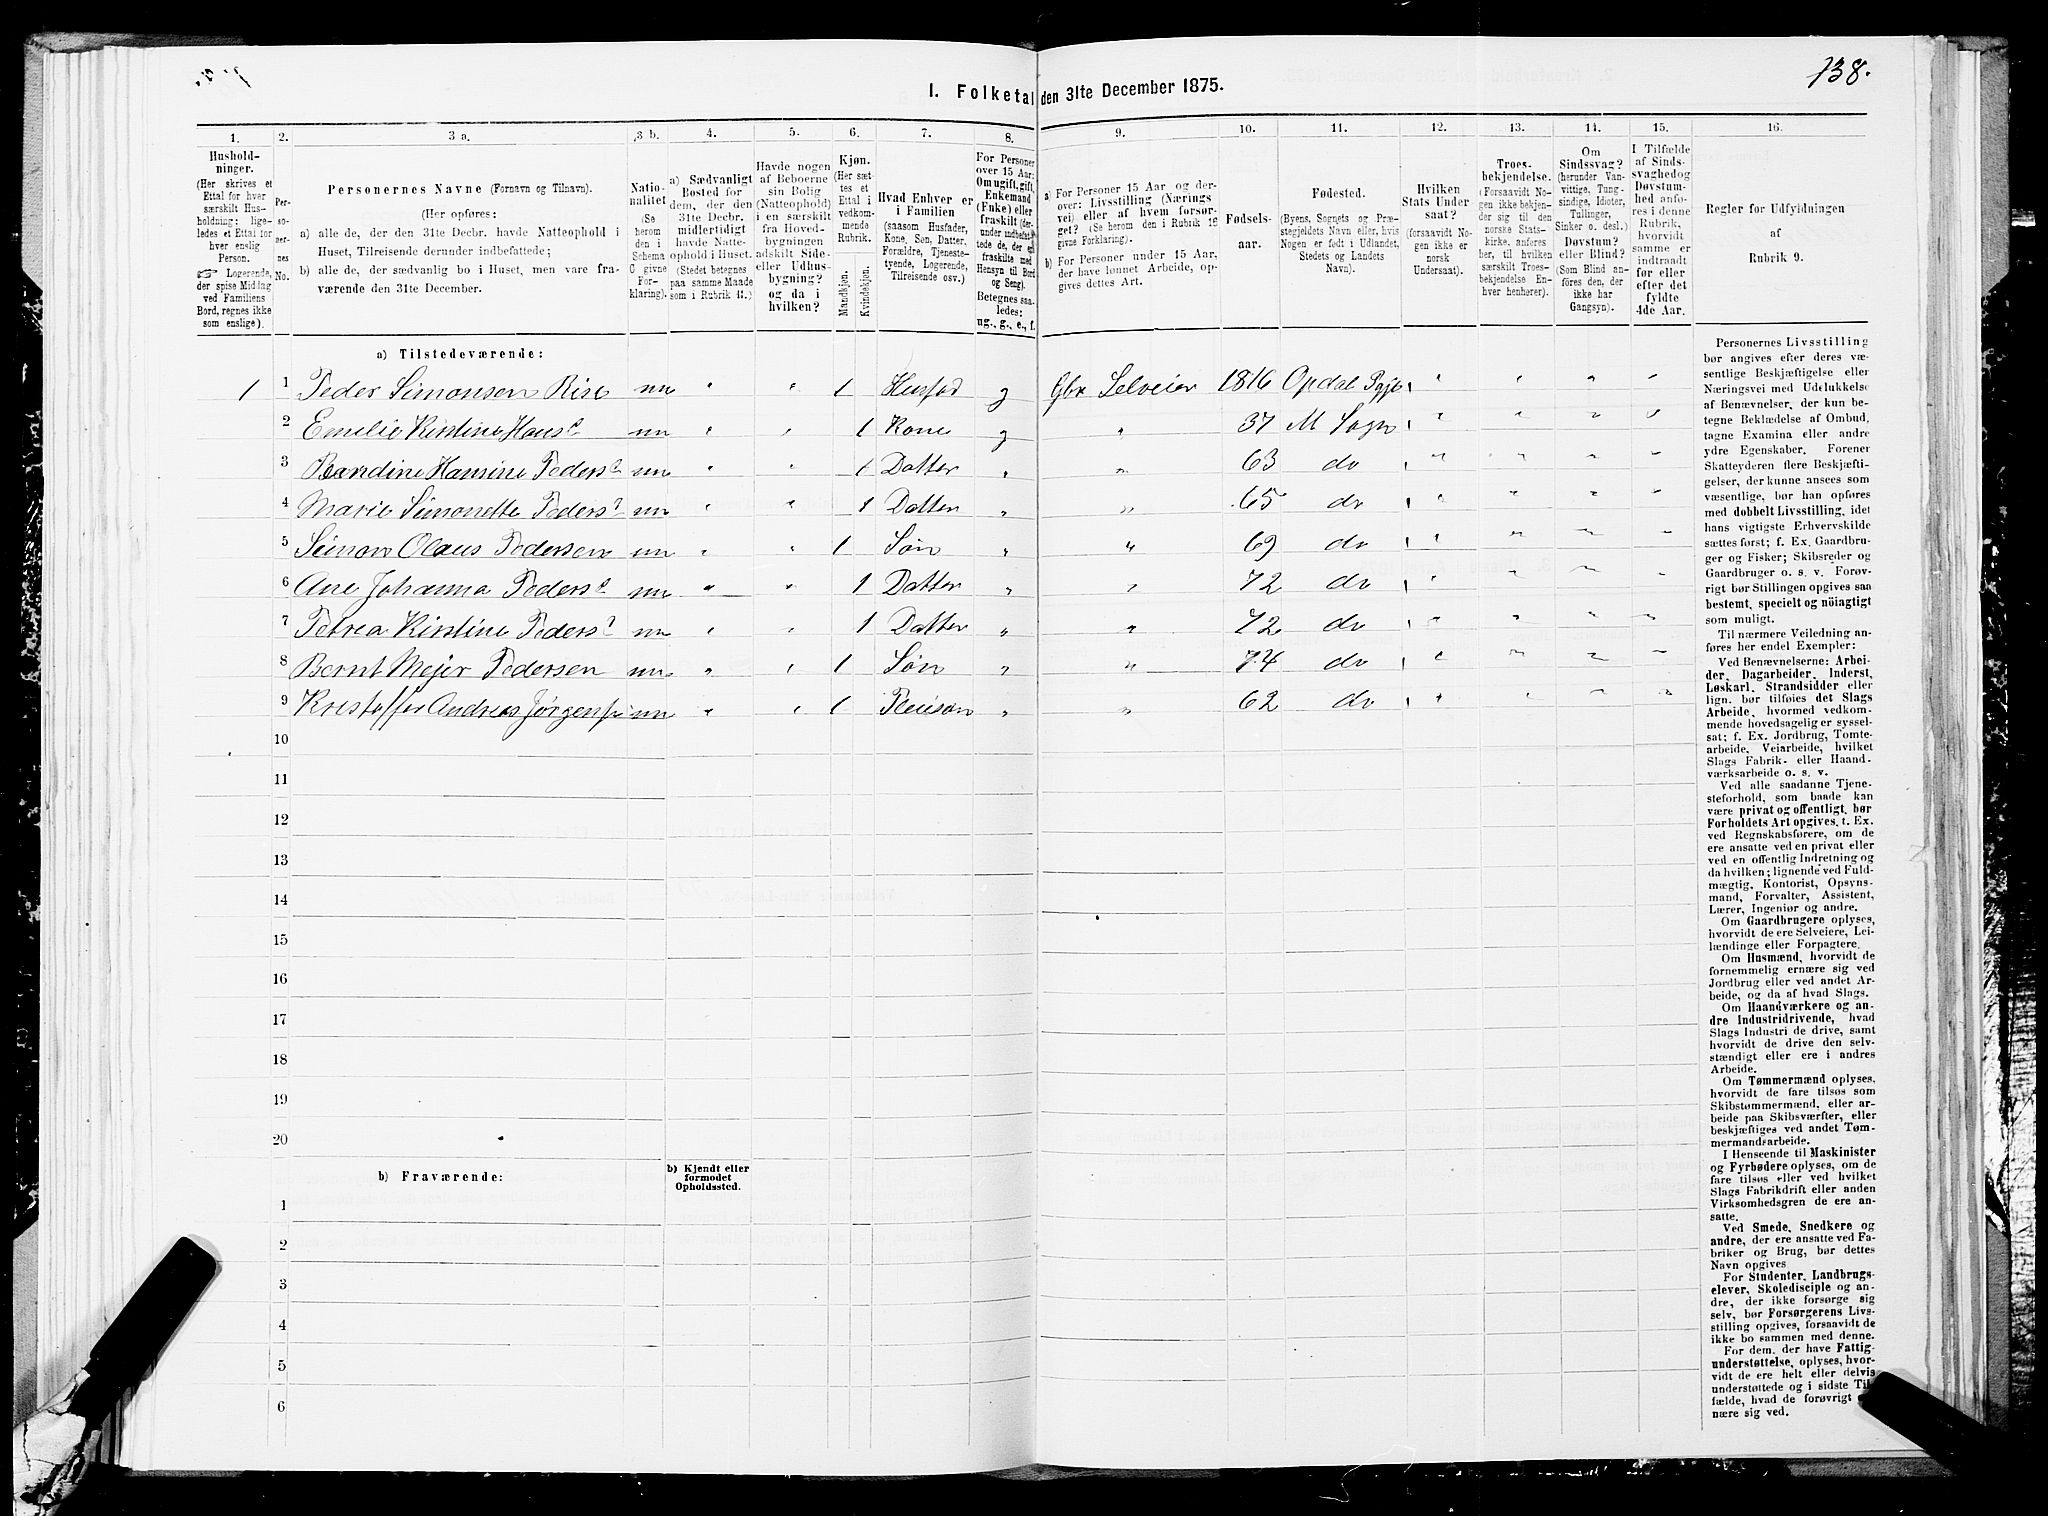 138.
I. Folketal den 31te December 1875.
1. 2. 3 a. 3 b. 4. 5. 6. 7. 8. 9. 10. 11. 12. 13. 14. 15. 16.
Husholdninger.
(Her skrives et Ettal for hver særskilt Husholdning; ligeledes et Ettal for hver enslig Person.
☞ Logerende, der spise Middag ved Familiens Bord, regnes ikke som enslige).
Personernes No.
Personernes Navne (Fornavn og Tilnavn).
(Her opføres:
a) alle de, der den 31te Decbr. havde Natteophold i Huset, Tilreisende derunder indbefattede;
b) alle de, der sædvanlig bo i Huset, men vare fraværende den 31te December.
Nationalitet
(Se herom den i Schema C givne Forklaring).
a) Sædvanligt Bosted for dem, der den 31te Decbr. midlertidigt havde Natteophold i Huset.
(Stedet betegnes paa samme Maade som i Rubrik 11.)
Havde nogen af Beboerne sin Bolig (Natteophold) i en særskilt fra Hovedbygningen adskilt Side- eller Udhusbygning? og da i hvilken?
Kjøn.
(Her sættes et Ettal i vedkommende Rubrik.
Mandkjøn. Kvindekjøn.
Hvad Enhver er i Familien
(saasom Husfader, Kone, Søn, Datter, Forældre, Tjenestetyende, Logerende, Tilreisende osv.)
For Personer over 15 Aar: Om ugift, gift, Enkemand (Enke) eller fraskilt (derunder indbefattede de, der ere fraskilte med Hensyn til Bord og Seng).
Betegnes saaledes: ug., g., e., f.
a) For Personer 15 Aar og derover: Livsstilling (Næringsvei) eller af hvem forsørget? (Se herom den i Rubrik 16 givne Forklaring).
b) For Personer under 15 Aar, der have lønnet Arbeide, opgives dettes Art.
Fødselsaar.
Fødested.
(Byens, Sognets og Præstegjeldets Navn eller, hvis Nogen er født i Udlandet, Stedets og Landets Navn).
Hvilken Stats Undersaat?
(forsaavidt Nogen ikke er norsk Undersaat).
Troesbekjendelse.
(Forsaavidt Nogen ikke bekjender sig til den norske Statskirke, anføres her, til hvilken særskilt Troesbekjendelse Enhver henhører).
Om Sindssvag? (herunder Vanvittige, Tungsindige, Idioter, Tullinger, Sinker o. desl.)
Døvstum? eller Blind? (Som Blind anføres den, der ikke har Gangsyn).
I Tilfælde af Sindssvaghed og Døvstumhed anføres i denne Rubrik, hvorvidt samme er indtraadt før eller efter det fyldte 4de Aar.
Regler for Udfyldningen
af
Rubrik 9.
a) Tilstedeværende:
1 1 Peder Simonsen Rise nn " " 1 Husfad g Gbr Selveier 1816 Opdal Pgje " " " "
2 Emelie Kirstine Hans? nn " " 1 Kone g " 37 M Sogn " " " "
3 Bendine Hansine Peders? nn " " 1 Datter " " 63 do " " " "
4 Marie Simonette Peders? nn " " 1 Datter " " 65 do " " " "
5 Simon Olaus Pedersen nn " " 1 Søn " " 69 do " " " "
6 Ane Johanna Peders? nn " " 1 Datter " " 72 do " " " "
7 Petrea Kirstine Peders? nn " " 1 Datter " " 72 do " " " "
8 Bernt Mejer Pedersen nn " " 1 Søn " " 74 do " " " "
9 Kristoffer Andreas Jørgens nn " " 1 Pleiesøn " " 62 do " " " "
10
11
12
13
14
15
16
17
18
19
20
b) Fraværende:
b) Kjendt eller formodet Opholdssted.
1
2
3
4
5
6
Personernes Livsstilling
bør angives efter deres væ-
sentlige Beskjæftigelse eller
Næringsvei med Udelukkelse
af Benævnelser, der kun be-
tegne Beklædelse af Ombud,
tagne Examina eller andre
ydre Egenskaber. Forener
Skatteyderen flere Beskjæfti-
gelser, der kunne ansees som
væsentlige, bør han opføres
med dobbelt Livsstilling, idet
hans vigtigste Erhvervskilde
sættes først; f. Ex. Gaardbru-
ger og Fisker; Skibsreder og
Gaardbruger o. s. v. Forøv-
rigt bør Stillingen opgives saa
bestemt, specielt og nöiagtigt
som muligt.
Til nærmere Veiledning an-
føres her endel Exempler:
Ved Benævnelserne: Arbei-
der, Dagarbeider, Inderst,
Løskarl, Strandsidder eller
lign. bør tilføies det Slags
Arbeide, hvormed vedkom-
mende hovedsagelig er syssel-
sat; f. Ex. Jordbrug, Tomte-
arbeide, Veiarbeide, hvilket
Slags Fabrik- eller Haand-
værksarbeide o. s. v.
Ved alle saadanne Tjene-
steforhold, som baade kan
være privat og offentligt, bør
Forholdets Art opgives, t. Ex.
ved Regnskabsførere, om de
ere ansatte ved en privat eller
ved en offentlig Indretning og
da hvilken; lignende ved Fuld-
mægtig, Kontorist, Opsyns-
mand, Forvalter, Assistent,
Lærer, Ingeniør og andre.
Om Gaardbrugere oplyses,
hvorvidt de ere Selveiere, Lei-
lændinge eller Forpagtere.
Om Husmænd, hvorvidt de
fornemmelig ernære sig ved
Jordbrug eller ved andet Ar-
beide, og da af hvad Slags.
Om Haandværkere og an-
dre Industridrivende, hvad
Slags Industri de drive, samt
hvorvidt de drive den selv-
stændigt eller ere i andres
Arbeide.
Om Tømmermænd oplyses,
hvorvidt de fare tilsøs som
Skibstømmermænd, eller ar-
beide paa Skibsværfter, eller
beskjæftiges ved andet Tøm-
mermandsarbeide.
I Henseende til Maskinister
og Fyrbødere oplyses, om de
fare tilsøs eller ved hvilket
Slags Fabrikdrift eller anden
Virksomhedsgren de ere an-
satte.
Ved Smede, Snedkere og
andre, der ere ansatte ved Fa-
briker og Brug, bør dettes
Navn opgives
For Studenter, Landbrugs-
elever, Skoledisciple og an-
dre, der ikke forsørge sig
selv, bør Forsørgerens Livs-
stilling opgives, forsaavidt de
ikke bo sammen med denne.
For dem, der have Fattig-
understøttelse, oplyses, hvor-
vidt de ere helt eller delvis
understøttede og i sidste Til-
fælde, hvad de forøvrigt er-
nære sig ved.